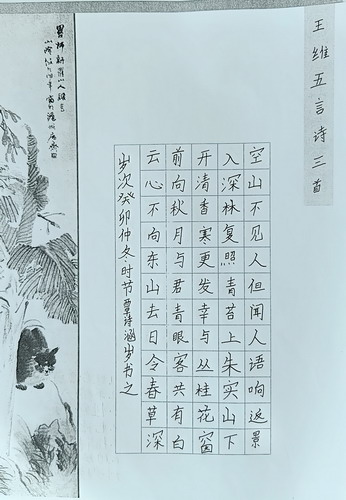 王维五言诗三首
空山不见人但闻人语响返景
入深林复照青苔上朱实山下
开清香寒更发幸与丛桂花窗
前向秋月与君青眼客共有白
云心不向东山去日令春草深
岁次癸卯仲冬时节覃诗涵岁书之